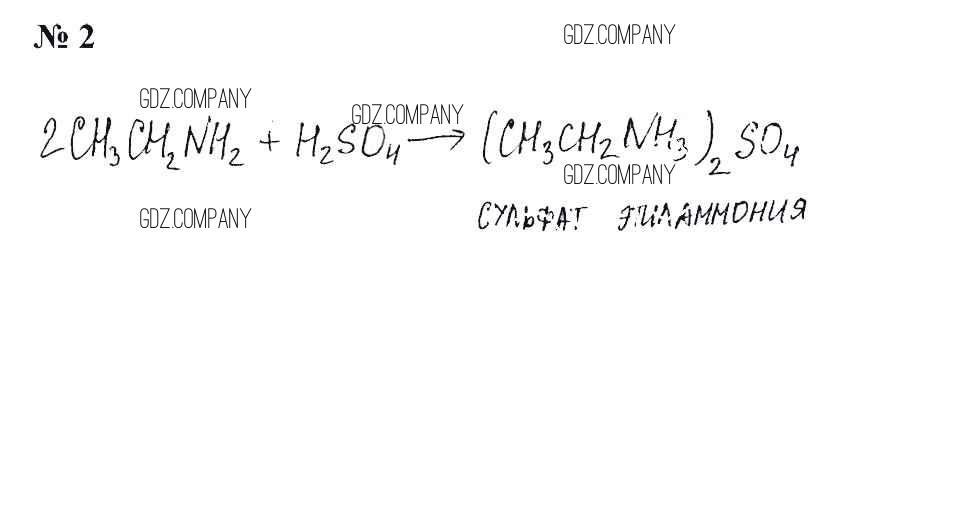 № 2
GDZ.COMPANY
GDZ.COMPANY
GDZ.COMPANY
2CH₃CH₂NH₂ + H₂SO₄ → (CH₃CH₂NH₃)₂SO₄
GDZ.COMPANY
GDZ.COMPANY
СУЛЬФАТ ЭТИЛАММОНИЯ